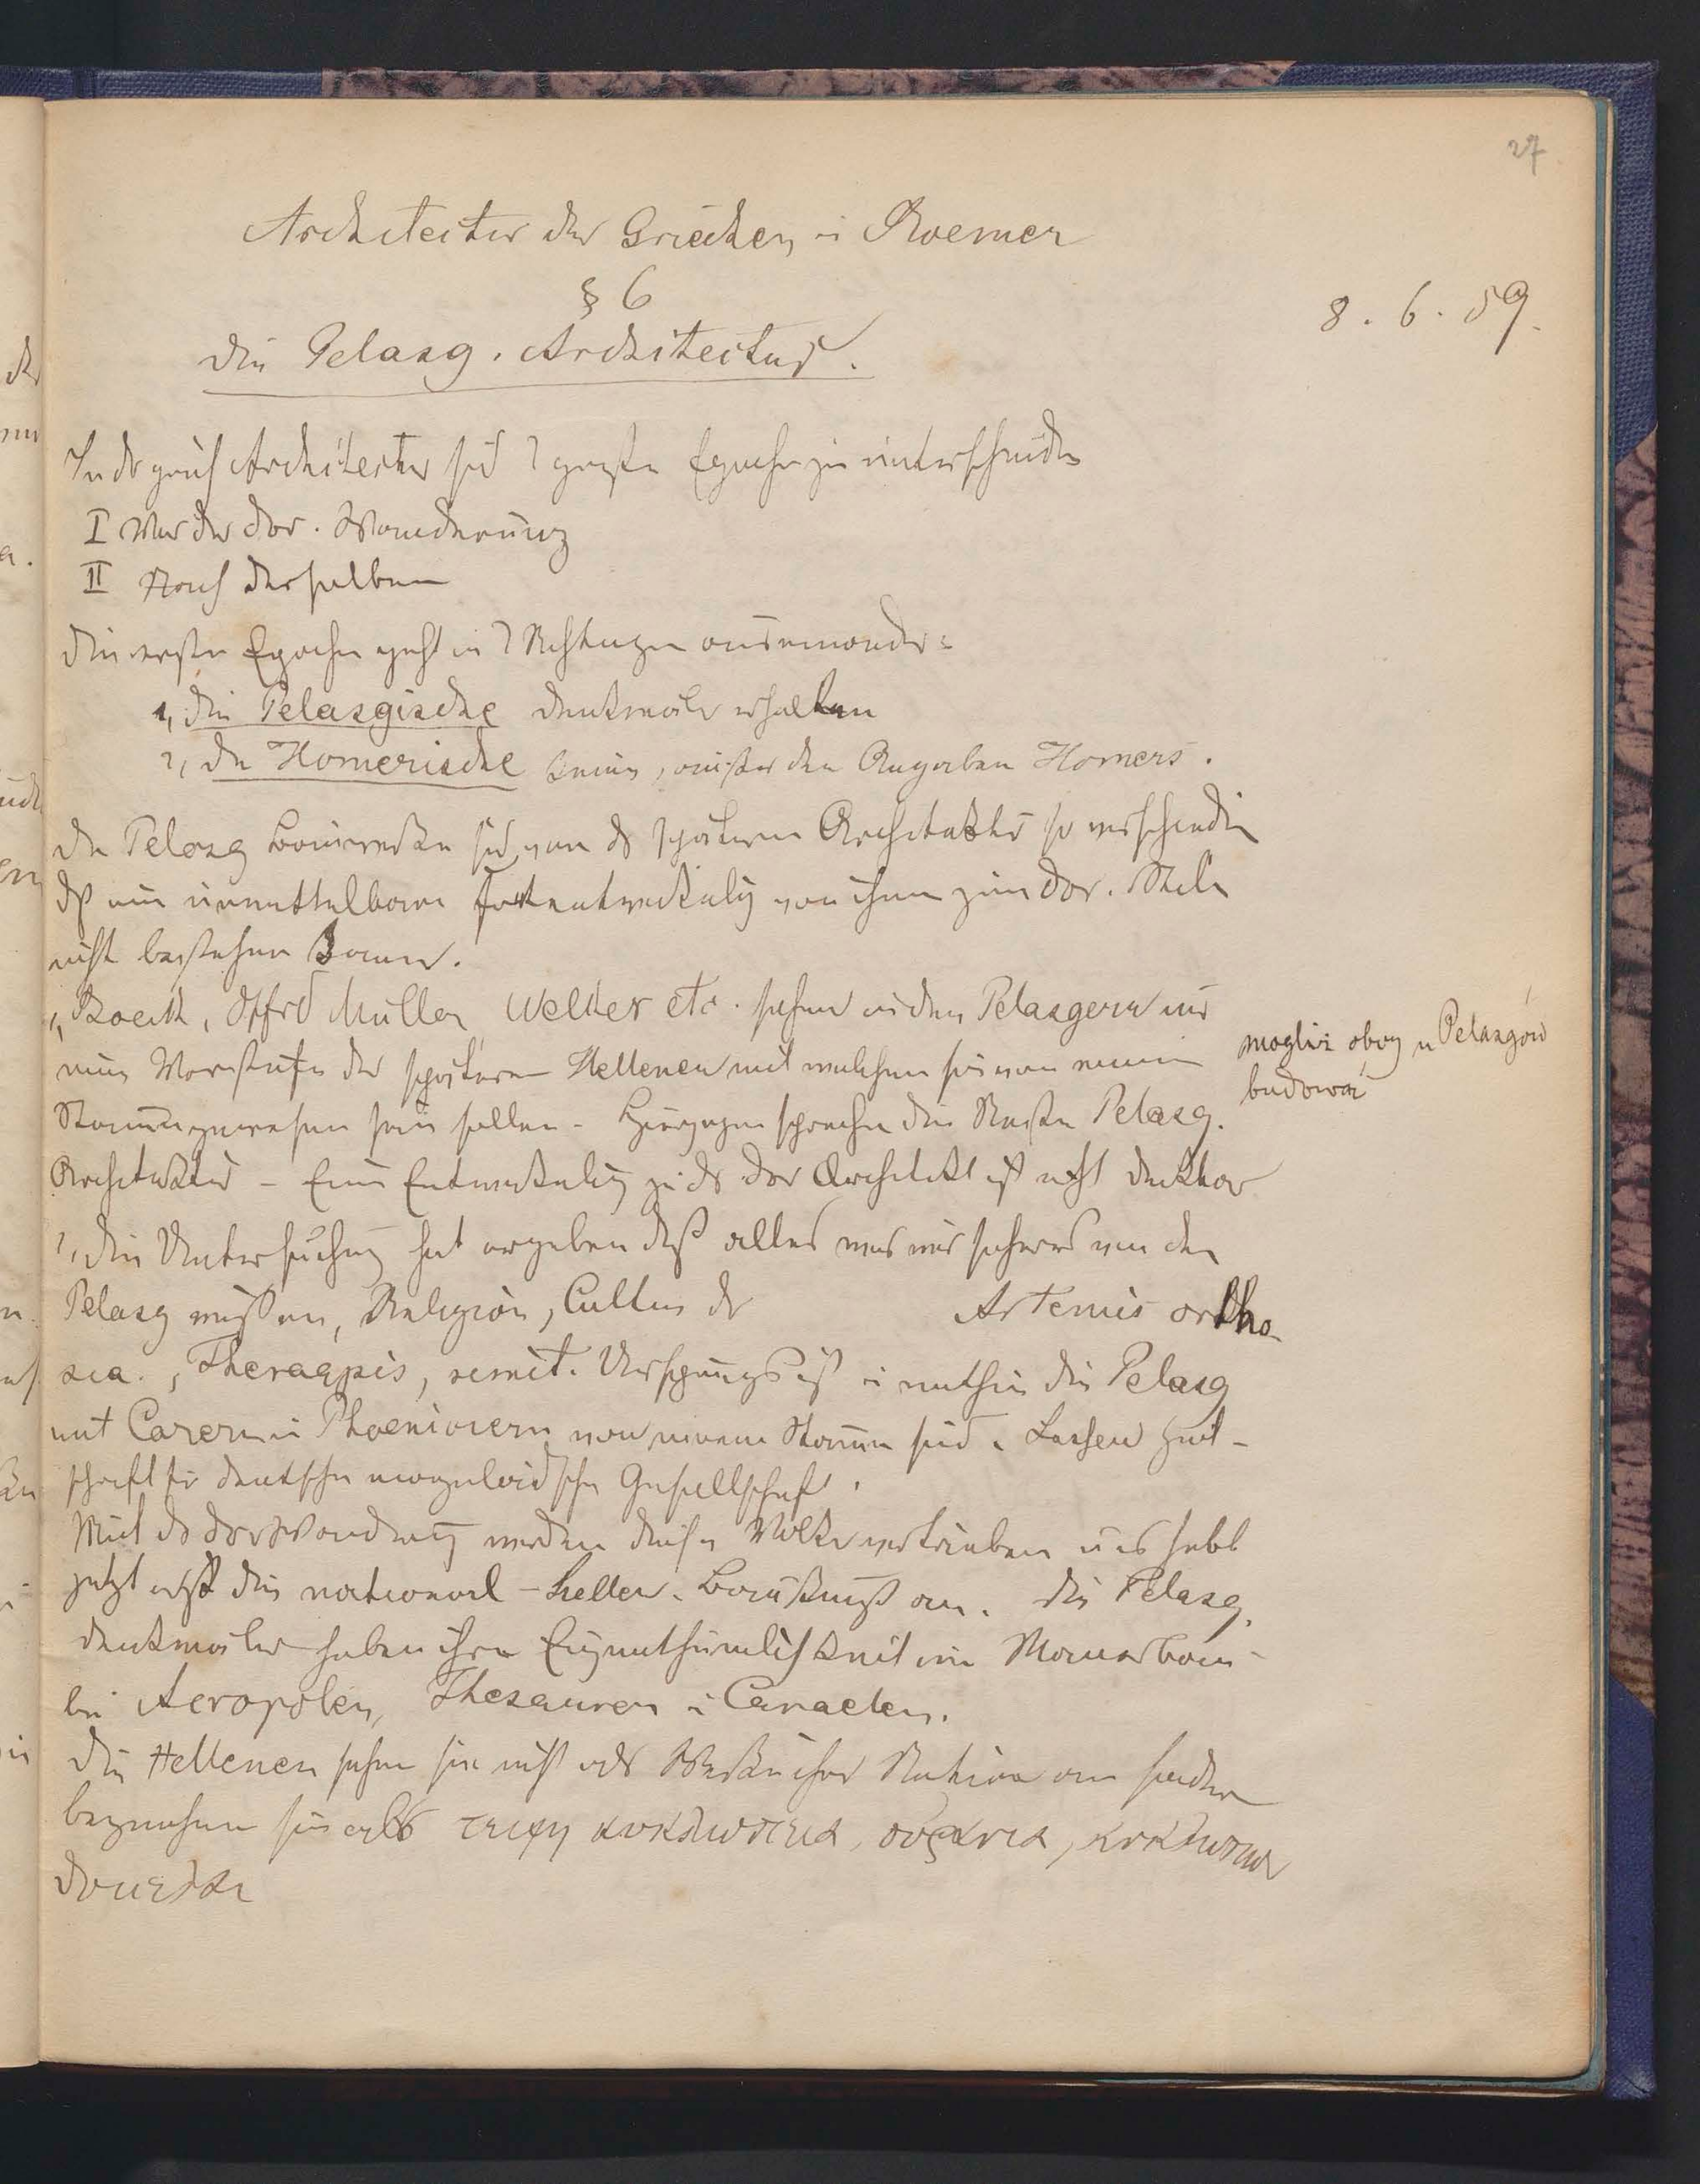 27
Architectur der Griechen u Roemer
§ 6
8. 6. 59.
Die Pelasg. Architectur.
In der griech Architectur sid 2 große Epochen zu unterscheiden
I Vor der dor. Wanderung
II Nach derselben
Die erste Epoche geht in 2 Richtungen auseinander:
1, die Pelasgische Denkmäler erhalten
2, die Homerische keine, außer den Angaben Homers.
Die Pelasg Bauwerke sid von der spätern Architektur so verschieden
dß eine unmittelbare Fortentwickelung von ihnen zum dor. Stile
nicht bestehen kann.
1, Boeckh, Otfrd Müller, Welker etc. sehen in den Pelasgern nur
eine Vorstufe der spätern Hellenen mit welchen sie von einem
Stamm gewesen sein sollen - Hiergegen sprechen die Reste Pelasg.
Architektur - Eine Entwickelung zu der dor Architekt ist nicht denkbar
mogliż oboy u Pelasgów
budować
2, die Untersuchung hat ergeben daß alles was wir sicheres von den
Pelasg wissen, Religion, Cultus der Artemis ortho-
sia, Therapnis, semit. Ursprungs ist u mithin die Pelasg
mit Carern u Phoeniciern von einem Stamm sind. Lassen Zeit-
schrift für deutsche morgenländische Gesellschaft.
Mit der dor Wanderung werden diese Völker vertrieben u es hebt
jetzt erst die national-hellen. Baukunst an. Die Pelasg.
Denkmäler haben ihre Eigenthümlichkeit im Mauerbau
bei Acropolen, Thesauren u Canaelen.
Die Hellenen sehen sie nicht als Werke ihrer Nation an sondern
bezeichnen sie als τειχη κυκλωπεια, κυκλωπων